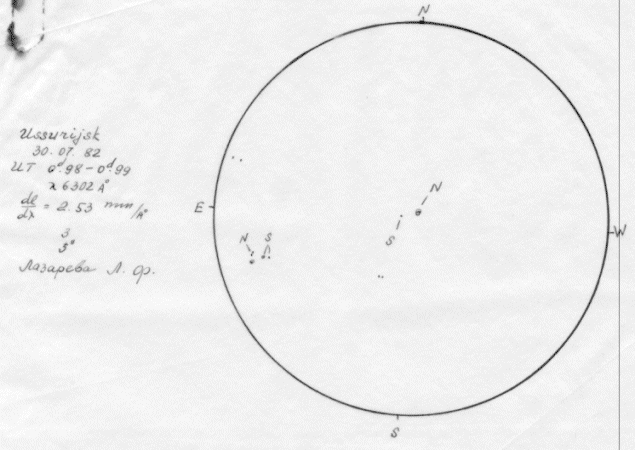 Ussurijsk
30.07.82
UT 0ᵈ.98-0ᵈ.99
λ 6302 Å
dl/dλ = 2.53 mm/Å
3
3"
Лазарева Л. Ф.
N
E
W
S
N
S
N S